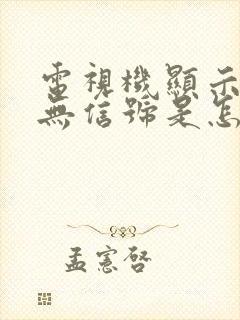 電視機顯示
無信號是怎
孟憲啓